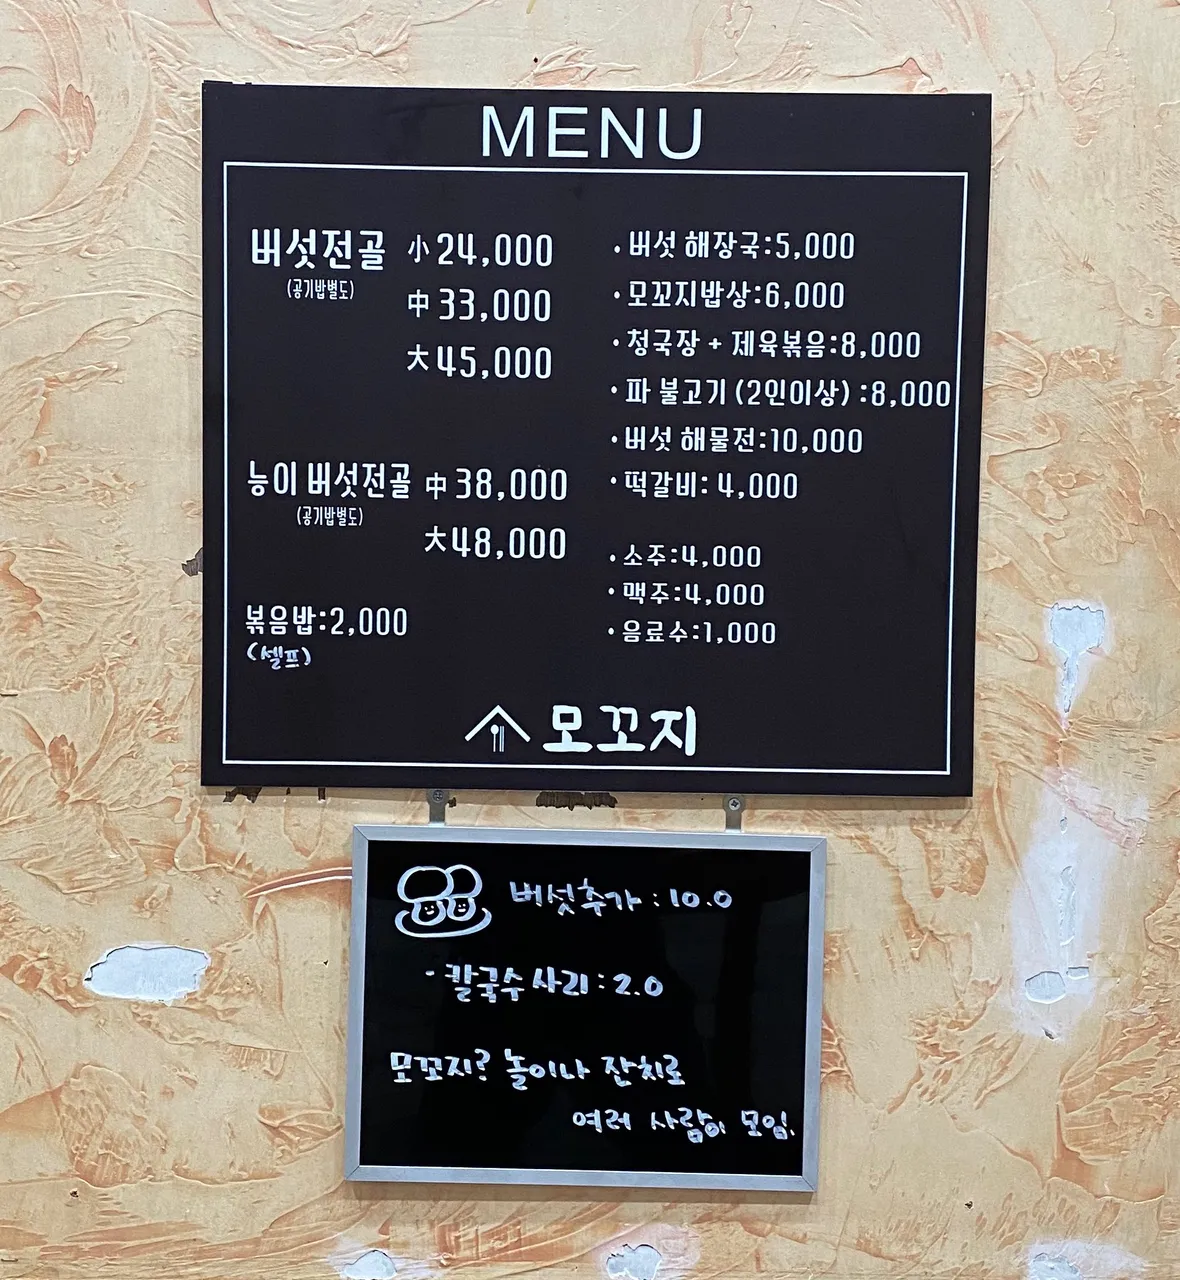 MENU
버섯전골 小 24,000
(공기밥별도)
中 33,000
大 45,000
능이 버섯전골 中 38,000
(공기밥별도)
大 48,000
볶음밥:2,000
(셀프)
· 버섯 해장국:5,000
· 모꼬지밥상:6,000
· 청국장 + 제육볶음:8,000
· 파 불고기 (2인이상) :8,000
· 버섯 해물전:10,000
· 떡갈비: 4,000
· 소주:4,000
· 맥주:4,000
· 음료수:1,000
모꼬지
버섯추가 : 10.0
- 칼국수 사리 : 2.0
모꼬지? 놀이나 잔치로
여러 사람이 모임.